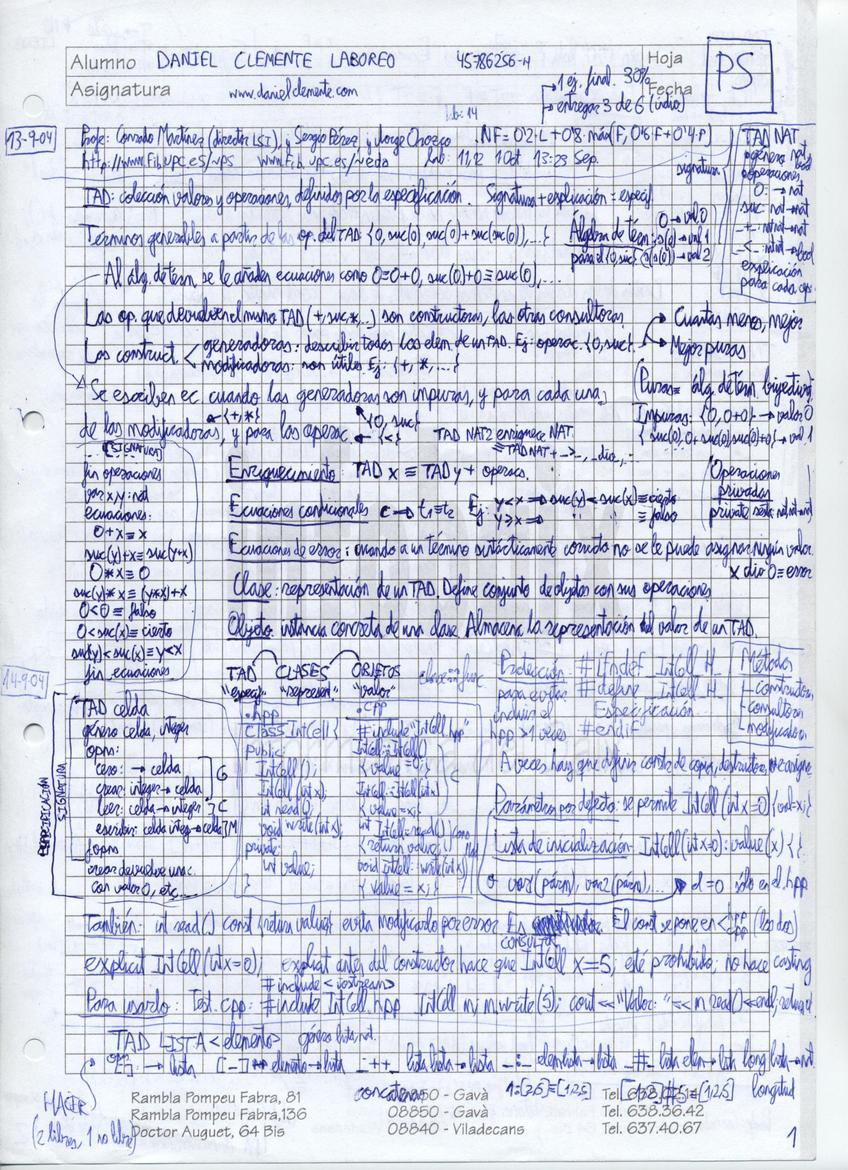 Alumno DANIEL CLEMENTE LABOREO 45786256-H Hoja
Asignatura www.danielclemente.com Fecha
PS
1 ej. final. 30%
entregar 3 de 6 (indiv)
Lab: 14
13-9-04
Profe: Conrado Martínez (director LSI), y Sergio Pérez, y Jorge Orozco. NF = 0'2·L + 0'8·máx(F, 0'6·F + 0'4·P)
http://www.fib.upc.es/~ps www.fib.upc.es/~eda Lab: 11,12 1 Oct 13:23 Sep.
TAD NAT
género nat
operaciones
0: → nat
suc: nat→nat
_+_: nat nat→nat
_<_: nat nat→bool
explicación
para cada op.
signatura
TAD: colección valores y operaciones, definidos por la especificación. Signatura + explicación = especif.
Términos generables a partir de las op. del TAD: {0, suc(0), suc(0)+suc(suc(0)),...}
Álgebra de térm. 0→val 0
s(0)→val 1
para el {0, suc} s(s(0))→val 2
Al álg. de térm. se le añaden ecuaciones como 0≡0+0, suc(0)+0≡suc(0),...
Las op. que devuelven el mismo TAD (+, suc, *, ..) son constructoras, las otras consultoras.
Las construct. generadoras: describir todos los elem de un TAD. Ej: operac. {0, suc}. → Cuantas menos, mejor
modificadoras: son útiles. Ej: {+, *, ...} → Mejor puras
Se escriben ec. cuando las generadoras son impuras, y para cada una
de las modificadoras, y para las operac.
{+,*} {0, suc} {<}
Puras ≡ álg. de térm. biyectiva
Impuras: {0, 0+0} → valor 0
{suc(0), 0+suc(0), suc(0)+0} → val 1
TAD NAT2 enriquece NAT
≡ TAD NAT + _>_, _div_, ...
(SIGNATURA)
fin operaciones
var x,y: nat
ecuaciones:
0+x ≡ x
suc(y)+x ≡ suc(y+x)
0*x ≡ 0
suc(y)*x ≡ (y*x)+x
0<0 ≡ falso
0<suc(x) ≡ cierto
suc(y)<suc(x) ≡ y<x
fin ecuaciones
Enriquecimiento: TAD x ≡ TAD y + operacs.
Operaciones
privadas
Ecuaciones condicionales c → t1≡t2 Ej: y<x ⇒ suc(y)<suc(x) ≡ cierto
y≥x ⇒ " " ≡ falso
Ecuaciones de error: cuando a un término sintácticamente correcto no se le puede asignar ningún valor.
x div 0 ≡ error
Clase: representación de un TAD. Define conjunto de objetos con sus operaciones
Objeto: instancia concreta de una clase. Almacena la representación del valor de un TAD.
14-9-04
TAD CLASES OBJETOS
"especif" "represent" "valor"
ESPECIFICACIÓN
SIGNATURA
TAD celda
género celda, integer
opns:
cero: → celda
crear: integer → celda
G
leer: celda → integer } C
escribir: celda integ → celda } M
fopns
crear devuelve una c.
con valor 0, etc...
.hpp
class IntCell {
public:
IntCell();
IntCell(int x);
int read();
void write(int x);
private:
int value;
}
.cpp
#include "IntCell.hpp"
IntCell::IntCell()
{ value = 0; }
IntCell::IntCell(int x)
{ value = x; }
int IntCell::read()
{ return value; }
void IntCell::write(int x)
{ value = x; }
Protección: #ifndef _IntCell_H_
para evitar #define _IntCell_H_
incluir el Especificación...
hpp >1 veces #endif
Métodos
constructores
consultores
modificadores
A veces hay que definir constr. de copia, destructor, re-asignac.
Parámetros por defecto: se permite IntCell(int x=0) {val=x;}
Lista de inicialización: IntCell(int x=0): value(x) { }
o var1(párm), var2(párm),... el =0 sólo en el hpp
También: int read() const {return value;} evita modificarlo por error. Es CONSULTOR El const se pone en hpp cpp (los dos)
explicit IntCell(int x=0); explicit antes del constructor hace que IntCell x=5; esté prohibido; no hace casting
#include <iostream>
Para usarlo: Test.cpp: #include IntCell.hpp IntCell m; m.write(5); cout << "Valor: " << m.read() << endl; return 0
TAD LISTA <elemento> género lista, nat.
ops: []: → lista [_]: elemento → lista _++_ lista lista → lista _:_ elem lista → lista _#_ lista elem → lista long lista → nat.
concatenar 1:[2,5]≡[1,2,5] [1,2]#5≡[1,2,5] longitud
HACER
(2 libres, 1 no libre)
Rambla Pompeu Fabra, 81 08850 - Gavà Tel.
Rambla Pompeu Fabra,136 08850 - Gavà Tel. 638.36.42
Doctor Auguet, 64 Bis 08840 - Viladecans Tel. 637.40.67
1